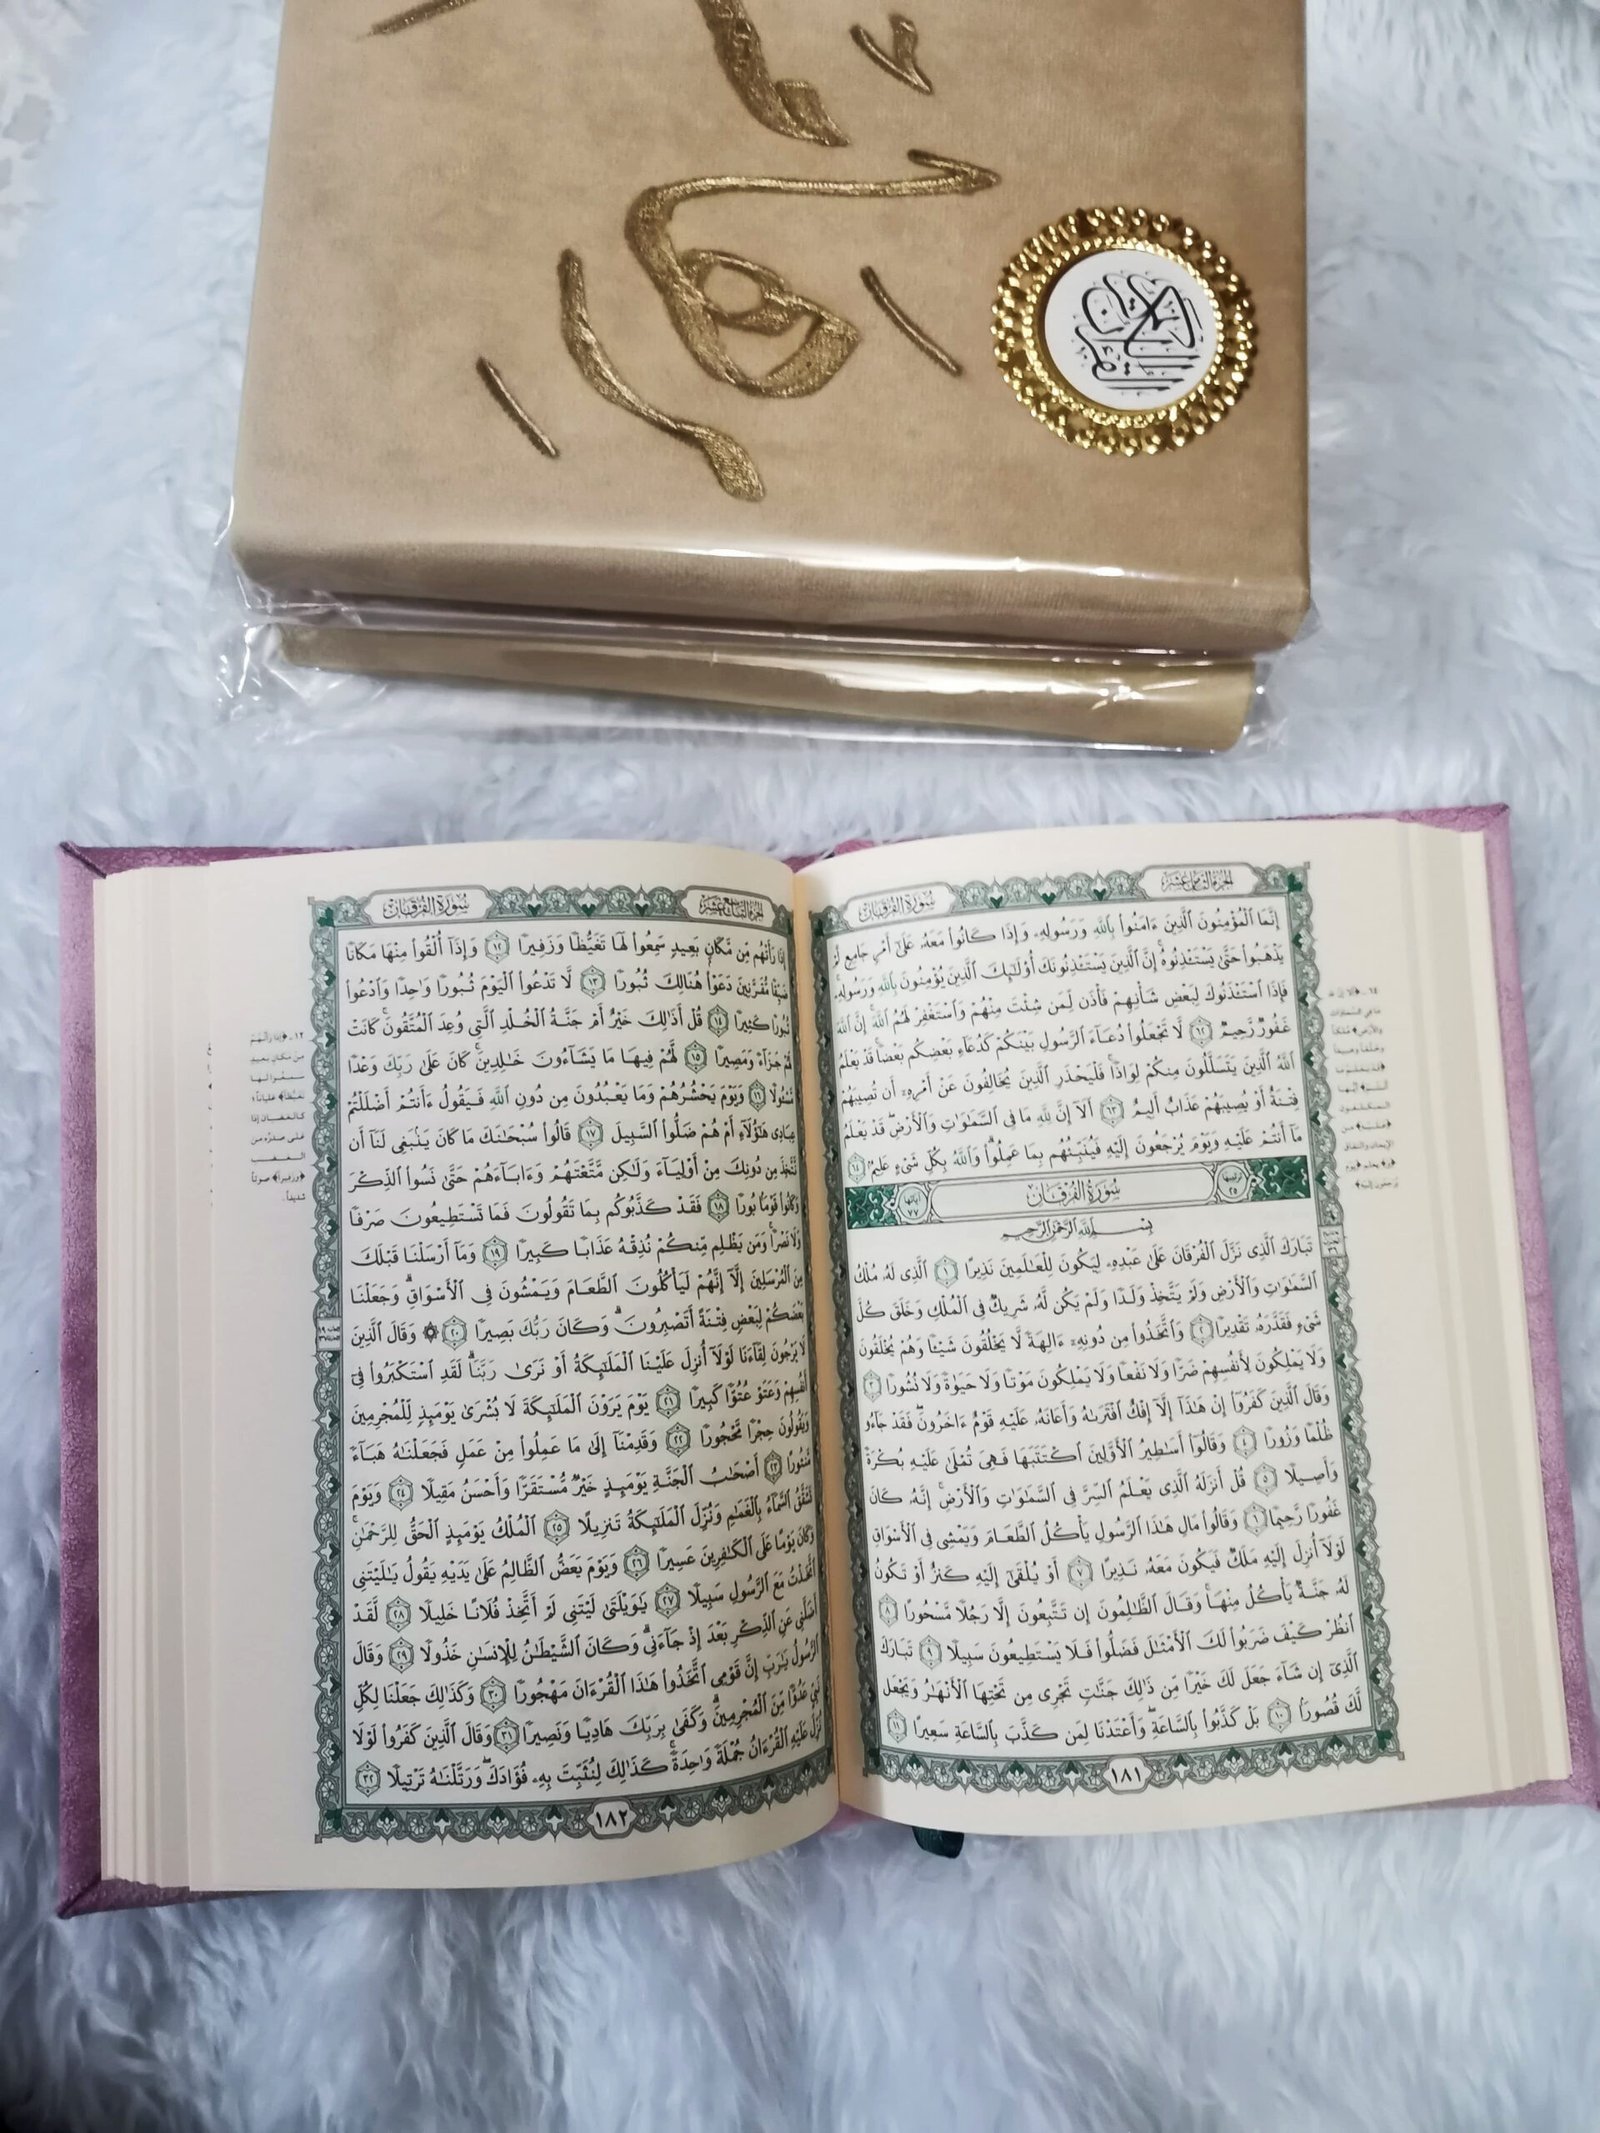 القرآن الكريم
الجزء الثامن عشر
سورة الفرقان
إِنَّمَا ٱلْمُؤْمِنُونَ ٱلَّذِينَ ءَامَنُوا۟ بِٱللَّهِ وَرَسُولِهِۦ وَإِذَا كَانُوا۟ مَعَهُۥ عَلَىٰٓ أَمْرٍ جَامِعٍ لَّمْ
يَذْهَبُوا۟ حَتَّىٰ يَسْتَـْٔذِنُوهُ ۚ إِنَّ ٱلَّذِينَ يَسْتَـْٔذِنُونَكَ أُو۟لَٰٓئِكَ ٱلَّذِينَ يُؤْمِنُونَ بِٱللَّهِ وَرَسُولِهِۦ ۚ
فَإِذَا ٱسْتَـْٔذَنُوكَ لِبَعْضِ شَأْنِهِمْ فَأْذَن لِّمَن شِئْتَ مِنْهُمْ وَٱسْتَغْفِرْ لَهُمُ ٱللَّهَ ۚ إِنَّ ٱللَّهَ
غَفُورٌ رَّحِيمٌ ٦٢ لَّا تَجْعَلُوا۟ دُعَآءَ ٱلرَّسُولِ بَيْنَكُمْ كَدُعَآءِ بَعْضِكُم بَعْضًا ۚ قَدْ يَعْلَمُ
ٱللَّهُ ٱلَّذِينَ يَتَسَلَّلُونَ مِنكُمْ لِوَاذًا ۚ فَلْيَحْذَرِ ٱلَّذِينَ يُخَالِفُونَ عَنْ أَمْرِهِۦٓ أَن تُصِيبَهُمْ
فِتْنَةٌ أَوْ يُصِيبَهُمْ عَذَابٌ أَلِيمٌ ٦٣ أَلَآ إِنَّ لِلَّهِ مَا فِى ٱلسَّمَٰوَٰتِ وَٱلْأَرْضِ ۖ قَدْ يَعْلَمُ
مَآ أَنتُمْ عَلَيْهِ وَيَوْمَ يُرْجَعُونَ إِلَيْهِ فَيُنَبِّئُهُم بِمَا عَمِلُوا۟ ۗ وَٱللَّهُ بِكُلِّ شَىْءٍ عَلِيمٌۢ ٦٤
ترتيبها ٢٥ سورة الفرقان آياتها ٧٧
بِسْمِ ٱللَّهِ ٱلرَّحْمَٰنِ ٱلرَّحِيمِ
تَبَارَكَ ٱلَّذِى نَزَّلَ ٱلْفُرْقَانَ عَلَىٰ عَبْدِهِۦ لِيَكُونَ لِلْعَٰلَمِينَ نَذِيرًا ١ ٱلَّذِى لَهُۥ مُلْكُ
ٱلسَّمَٰوَٰتِ وَٱلْأَرْضِ وَلَمْ يَتَّخِذْ وَلَدًا وَلَمْ يَكُن لَّهُۥ شَرِيكٌ فِى ٱلْمُلْكِ وَخَلَقَ كُلَّ
شَىْءٍ فَقَدَّرَهُۥ تَقْدِيرًا ٢ وَٱتَّخَذُوا۟ مِن دُونِهِۦٓ ءَالِهَةً لَّا يَخْلُقُونَ شَيْـًٔا وَهُمْ يُخْلَقُونَ
وَلَا يَمْلِكُونَ لِأَنفُسِهِمْ ضَرًّا وَلَا نَفْعًا وَلَا يَمْلِكُونَ مَوْتًا وَلَا حَيَوٰةً وَلَا نُشُورًا ٣
وَقَالَ ٱلَّذِينَ كَفَرُوٓا۟ إِنْ هَٰذَآ إِلَّآ إِفْكٌ ٱفْتَرَىٰهُ وَأَعَانَهُۥ عَلَيْهِ قَوْمٌ ءَاخَرُونَ ۖ فَقَدْ جَآءُو
ظُلْمًا وَزُورًا ٤ وَقَالُوٓا۟ أَسَٰطِيرُ ٱلْأَوَّلِينَ ٱكْتَتَبَهَا فَهِىَ تُمْلَىٰ عَلَيْهِ بُكْرَةً
وَأَصِيلًا ٥ قُلْ أَنزَلَهُ ٱلَّذِى يَعْلَمُ ٱلسِّرَّ فِى ٱلسَّمَٰوَٰتِ وَٱلْأَرْضِ ۚ إِنَّهُۥ كَانَ
غَفُورًا رَّحِيمًا ٦ وَقَالُوا۟ مَالِ هَٰذَا ٱلرَّسُولِ يَأْكُلُ ٱلطَّعَامَ وَيَمْشِى فِى ٱلْأَسْوَاقِ ۙ
لَوْلَآ أُنزِلَ إِلَيْهِ مَلَكٌ فَيَكُونَ مَعَهُۥ نَذِيرًا ٧ أَوْ يُلْقَىٰٓ إِلَيْهِ كَنزٌ أَوْ تَكُونُ
لَهُۥ جَنَّةٌ يَأْكُلُ مِنْهَا ۚ وَقَالَ ٱلظَّٰلِمُونَ إِن تَتَّبِعُونَ إِلَّا رَجُلًا مَّسْحُورًا ٨
ٱنظُرْ كَيْفَ ضَرَبُوا۟ لَكَ ٱلْأَمْثَٰلَ فَضَلُّوا۟ فَلَا يَسْتَطِيعُونَ سَبِيلًا ٩ تَبَارَكَ
ٱلَّذِىٓ إِن شَآءَ جَعَلَ لَكَ خَيْرًا مِّن ذَٰلِكَ جَنَّٰتٍ تَجْرِى مِن تَحْتِهَا ٱلْأَنْهَٰرُ وَيَجْعَل
لَّكَ قُصُورًۢا ١٠ بَلْ كَذَّبُوا۟ بِٱلسَّاعَةِ ۖ وَأَعْتَدْنَا لِمَن كَذَّبَ بِٱلسَّاعَةِ سَعِيرًا ١١
١٨١
الجزء التاسع عشر
سورة الفرقان
إِذَا رَأَتْهُم مِّن مَّكَانٍۭ بَعِيدٍ سَمِعُوا۟ لَهَا تَغَيُّظًا وَزَفِيرًا ١٢ وَإِذَآ أُلْقُوا۟ مِنْهَا مَكَانًا
ضَيِّقًا مُّقَرَّنِينَ دَعَوْا۟ هُنَالِكَ ثُبُورًا ١٣ لَّا تَدْعُوا۟ ٱلْيَوْمَ ثُبُورًا وَٰحِدًا وَٱدْعُوا۟
ثُبُورًا كَثِيرًا ١٤ قُلْ أَذَٰلِكَ خَيْرٌ أَمْ جَنَّةُ ٱلْخُلْدِ ٱلَّتِى وُعِدَ ٱلْمُتَّقُونَ ۚ كَانَتْ
لَهُمْ جَزَآءً وَمَصِيرًا ١٥ لَّهُمْ فِيهَا مَا يَشَآءُونَ خَٰلِدِينَ ۚ كَانَ عَلَىٰ رَبِّكَ وَعْدًا
مَّسْـُٔولًا ١٦ وَيَوْمَ يَحْشُرُهُمْ وَمَا يَعْبُدُونَ مِن دُونِ ٱللَّهِ فَيَقُولُ ءَأَنتُمْ أَضْلَلْتُمْ
عِبَادِى هَٰٓؤُلَآءِ أَمْ هُمْ ضَلُّوا۟ ٱلسَّبِيلَ ١٧ قَالُوا۟ سُبْحَٰنَكَ مَا كَانَ يَنۢبَغِى لَنَآ أَن
نَّتَّخِذَ مِن دُونِكَ مِنْ أَوْلِيَآءَ وَلَٰكِن مَّتَّعْتَهُمْ وَءَابَآءَهُمْ حَتَّىٰ نَسُوا۟ ٱلذِّكْرَ
وَكَانُوا۟ قَوْمًۢا بُورًا ١٨ فَقَدْ كَذَّبُوكُم بِمَا تَقُولُونَ فَمَا تَسْتَطِيعُونَ صَرْفًا
وَلَا نَصْرًا ۚ وَمَن يَظْلِم مِّنكُمْ نُذِقْهُ عَذَابًا كَبِيرًا ١٩ وَمَآ أَرْسَلْنَا قَبْلَكَ
مِنَ ٱلْمُرْسَلِينَ إِلَّآ إِنَّهُمْ لَيَأْكُلُونَ ٱلطَّعَامَ وَيَمْشُونَ فِى ٱلْأَسْوَاقِ ۗ وَجَعَلْنَا
بَعْضَكُمْ لِبَعْضٍ فِتْنَةً أَتَصْبِرُونَ ۗ وَكَانَ رَبُّكَ بَصِيرًا ٢٠ ۞ وَقَالَ ٱلَّذِينَ
لَا يَرْجُونَ لِقَآءَنَا لَوْلَآ أُنزِلَ عَلَيْنَا ٱلْمَلَٰٓئِكَةُ أَوْ نَرَىٰ رَبَّنَا ۗ لَقَدِ ٱسْتَكْبَرُوا۟ فِىٓ
أَنفُسِهِمْ وَعَتَوْ عُتُوًّا كَبِيرًا ٢١ يَوْمَ يَرَوْنَ ٱلْمَلَٰٓئِكَةَ لَا بُشْرَىٰ يَوْمَئِذٍ لِّلْمُجْرِمِينَ
وَيَقُولُونَ حِجْرًا مَّحْجُورًا ٢٢ وَقَدِمْنَآ إِلَىٰ مَا عَمِلُوا۟ مِنْ عَمَلٍ فَجَعَلْنَٰهُ هَبَآءً
مَّنثُورًا ٢٣ أَصْحَٰبُ ٱلْجَنَّةِ يَوْمَئِذٍ خَيْرٌ مُّسْتَقَرًّا وَأَحْسَنُ مَقِيلًا ٢٤ وَيَوْمَ
تَشَقَّقُ ٱلسَّمَآءُ بِٱلْغَمَٰمِ وَنُزِّلَ ٱلْمَلَٰٓئِكَةُ تَنزِيلًا ٢٥ ٱلْمُلْكُ يَوْمَئِذٍ ٱلْحَقُّ لِلرَّحْمَٰنِ ۚ
وَكَانَ يَوْمًا عَلَى ٱلْكَٰفِرِينَ عَسِيرًا ٢٦ وَيَوْمَ يَعَضُّ ٱلظَّالِمُ عَلَىٰ يَدَيْهِ يَقُولُ يَٰلَيْتَنِى
ٱتَّخَذْتُ مَعَ ٱلرَّسُولِ سَبِيلًا ٢٧ يَٰوَيْلَتَىٰ لَيْتَنِى لَمْ أَتَّخِذْ فُلَانًا خَلِيلًا ٢٨ لَّقَدْ
أَضَلَّنِى عَنِ ٱلذِّكْرِ بَعْدَ إِذْ جَآءَنِى ۗ وَكَانَ ٱلشَّيْطَٰنُ لِلْإِنسَٰنِ خَذُولًا ٢٩ وَقَالَ
ٱلرَّسُولُ يَٰرَبِّ إِنَّ قَوْمِى ٱتَّخَذُوا۟ هَٰذَا ٱلْقُرْءَانَ مَهْجُورًا ٣٠ وَكَذَٰلِكَ جَعَلْنَا لِكُلِّ
نَبِىٍّ عَدُوًّا مِّنَ ٱلْمُجْرِمِينَ ۗ وَكَفَىٰ بِرَبِّكَ هَادِيًا وَنَصِيرًا ٣١ وَقَالَ ٱلَّذِينَ كَفَرُوا۟ لَوْلَا
نُزِّلَ عَلَيْهِ ٱلْقُرْءَانُ جُمْلَةً وَٰحِدَةً ۚ كَذَٰلِكَ لِنُثَبِّتَ بِهِۦ فُؤَادَكَ ۖ وَرَتَّلْنَٰهُ تَرْتِيلًا ٣٢
١٢ـ ﴿إذا رأتهم
من مكان بعيد
سمعوا لها
تغيظاً﴾ غلياناً
كالغضبان إذا
غلى صدره من
الغضب
﴿وزفيراً﴾ صوتاً
شديداً.
١٨٢